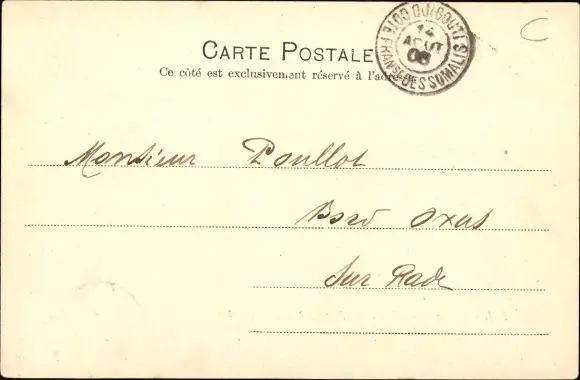 CARTE POSTALE
Ce côté est exclusivement réservé à l'adresse
DJIBOUTI
COTE FRANÇSE DES SOMALIS
14
AOUT
C
Monsieur Poullot
Bord Oxus
Sur Rade